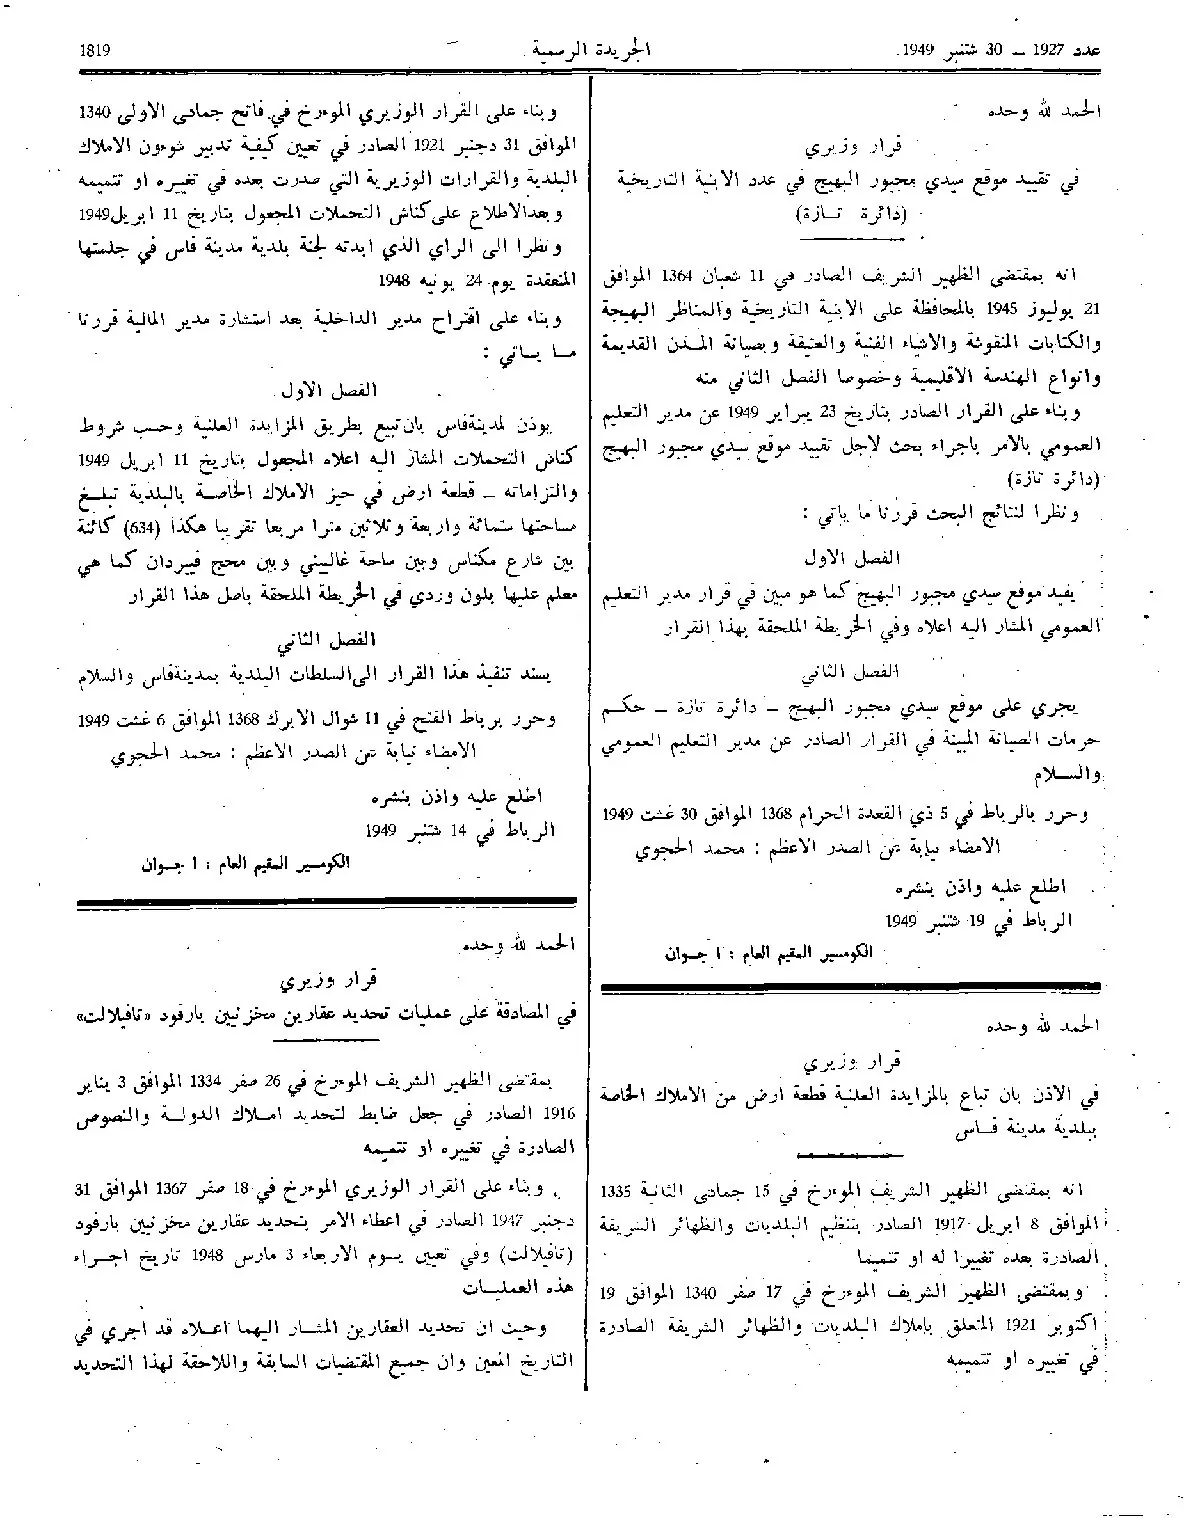 عدد 1927 – 30 شتنبر 1949.
الجريدة الرسمية
1819
الحمد لله وحده
قرار وزيري
في تقييد موقع سيدي مجبور البهيج في عدد الابنية التاريخية
(دائرة تازة)
انه بمقتضى الظهير الشريف الصادر في 11 شعبان 1364 الموافق
21 يوليوز 1945 بالمحافظة على الابنية التاريخية والمناظر البهيجة
والكتابات المنقوشة والاشياء الفنية والعتيقة وبصيانة المدن القديمة
وانواع الهندسة الاقليمية وخصوصا الفصل الثاني منه
وبناء على القرار الصادر بتاريخ 23 يبراير 1949 عن مدير التعليم
العمومي بالامر باجراء بحث لاجل تقييد موقع سيدي مجبور البهيج
(دائرة تازة)
ونظرا لنتائج البحث قررنا ما ياتي :
الفصل الاول
يقيد موقع سيدي مجبور البهيج كما هو مبين في قرار مدير التعليم
العمومي المشار اليه اعلاه وفي الخريطة الملحقة بهذا القرار
الفصل الثاني
يجري على موقع سيدي مجبور البهيج – دائرة تازة – حكم
حرمات الصيانة المبينة في القرار الصادر عن مدير التعليم العمومي
والسلام
وحرر بالرباط في 5 ذي القعدة الحرام 1368 الموافق 30 غشت 1949
الامضاء نيابة عن الصدر الاعظم : محمد الحجوي
اطلع عليه واذن بنشره
الرباط في 19 شتنبر 1949
الكومسير المقيم العام : ا جوان
الحمد لله وحده
قرار وزيري
في الاذن بان تباع بالمزايدة العلنية قطعة ارض من الاملاك الخاصة
ببلدية مدينة فاس
انه بمقتضى الظهير الشريف الموءرخ في 15 جمادى الثانية 1335
الموافق 8 ابريل 1917 الصادر بتنظيم البلديات والظهائر الشريفة
الصادرة بعده تغييرا له او تتميما
وبمقتضى الظهير الشريف الموءرخ في 17 صفر 1340 الموافق 19
اكتوبر 1921 المتعلق باملاك البلديات والظهائر الشريفة الصادرة
في تغييره او تتميمه
وبناء على القرار الوزيري الموءرخ في فاتح جمادى الاولى 1340
الموافق 31 دجنبر 1921 الصادر في تعيين كيفية تدبير شوءون الاملاك
البلدية والقرارات الوزيرية التي صدرت بعده في تغييره او تتميمه
وبعدالاطلاع على كناش التحملات المجعول بتاريخ 11 ابريل 1949
ونظرا الى الراي الذي ابدته لجنة بلدية مدينة فاس في جلستها
المنعقدة يوم 24 يونيه 1948
وبناء على اقتراح مدير الداخلية بعد استشارة مدير المالية قررنا
ما يـاتي :
الفصل الاول
يوذن لمدينةفاس بان تبيع بطريق المزايدة العلنية وحسب شروط
كناش التحملات المشار اليه اعلاه المجعول بتاريخ 11 ابريل 1949
والتزاماته – قطعة ارض في حيز الاملاك الخاصة بالبلدية تبلغ
مساحتها ستمائة واربعة وثلاثين مترا مربعا تقريبا هكذا (634) كائنة
بين شارع مكناس وبين ساحة غاليني وبين محج فيردان كما هي
معلم عليها بلون وردي في الخريطة الملحقة باصل هذا القرار
الفصل الثاني
يسند تنفيذ هذا القرار الى السلطات البلدية بمدينةفاس والسلام
وحرر برباط الفتح في 11 شوال الابرك 1368 الموافق 6 غشت 1949
الامضاء نيابة عن الصدر الاعظم : محمد الحجوي
اطلع عليه واذن بنشره
الرباط في 14 شتنبر 1949
الكومسير المقيم العام : ا جوان
الحمد لله وحده
قرار وزيري
في المصادقة على عمليات تحديد عقارين مخزنيين بارفود «تافيلالت»
بمقتضى الظهير الشريف الموءرخ في 26 صفر 1334 الموافق 3 يناير
1916 الصادر في جعل ضابط لتحديد املاك الدولة والنصوص
الصادرة في تغييره او تتميمه
وبناء على القرار الوزيري الموءرخ في 18 صفر 1367 الموافق 31
دجنبر 1947 الصادر في اعطاء الامر بتحديد عقارين مخزنيين بارفود
(تافيلالت) وفي تعيين يوم الاربعاء 3 مارس 1948 تاريخ اجراء
هذه العمليات
وحيث ان تحديد العقارين المشار اليهما اعلاه قد اجري في
التاريخ المعين وان جميع المقتضيات السابقة واللاحقة لهذا التحديد